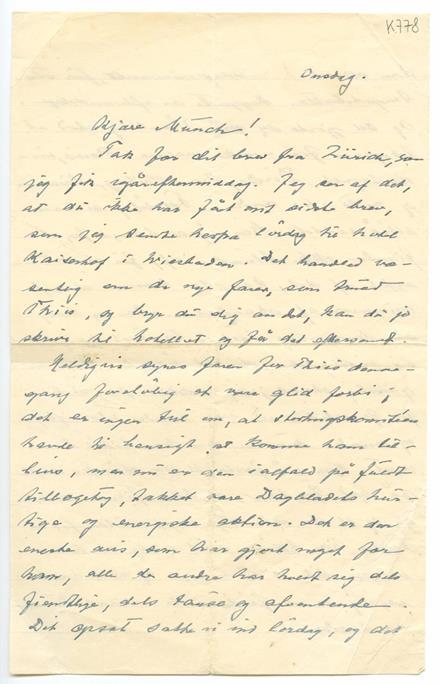 K778
Onsdag.
Kjære Munch!
Tak for dit brev fra Zürich, som
jeg fik igåreftermiddag. Jeg ser af det,
at du ikke har fåt mit sidste brev,
som jeg sendte herfra lördag til hotel
Kaiserhof i Wiesbaden. Det handled væ-
sentlig om de nye farer, som trued
Thiis, og bryr du dig om det, kan du jo
skrive til hotellet og få det eftersendt.
Heldigvis synes faren for Thiis denne-
gang foreløbig at være glid forbi;
det er ingen tvil om, at stortingskomiteen
havde til hensigt at komme ham til-
livs, men nu er den ialfald på fuldt
tilbagetog, takket være Dagbladets hur-
tige og energiske aktion. Det er den
eneste avis, som har gjort noget for
ham, alle de andre har holdt sig dels
fiendtlige, dels tause og afventende.
Dit opsat satte vi ind lördag, og det